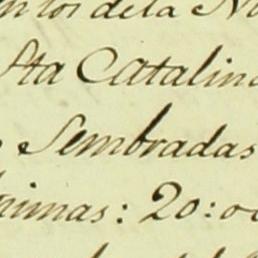 los de la
Sta Catalina
Sembradas
nimas: 20:00